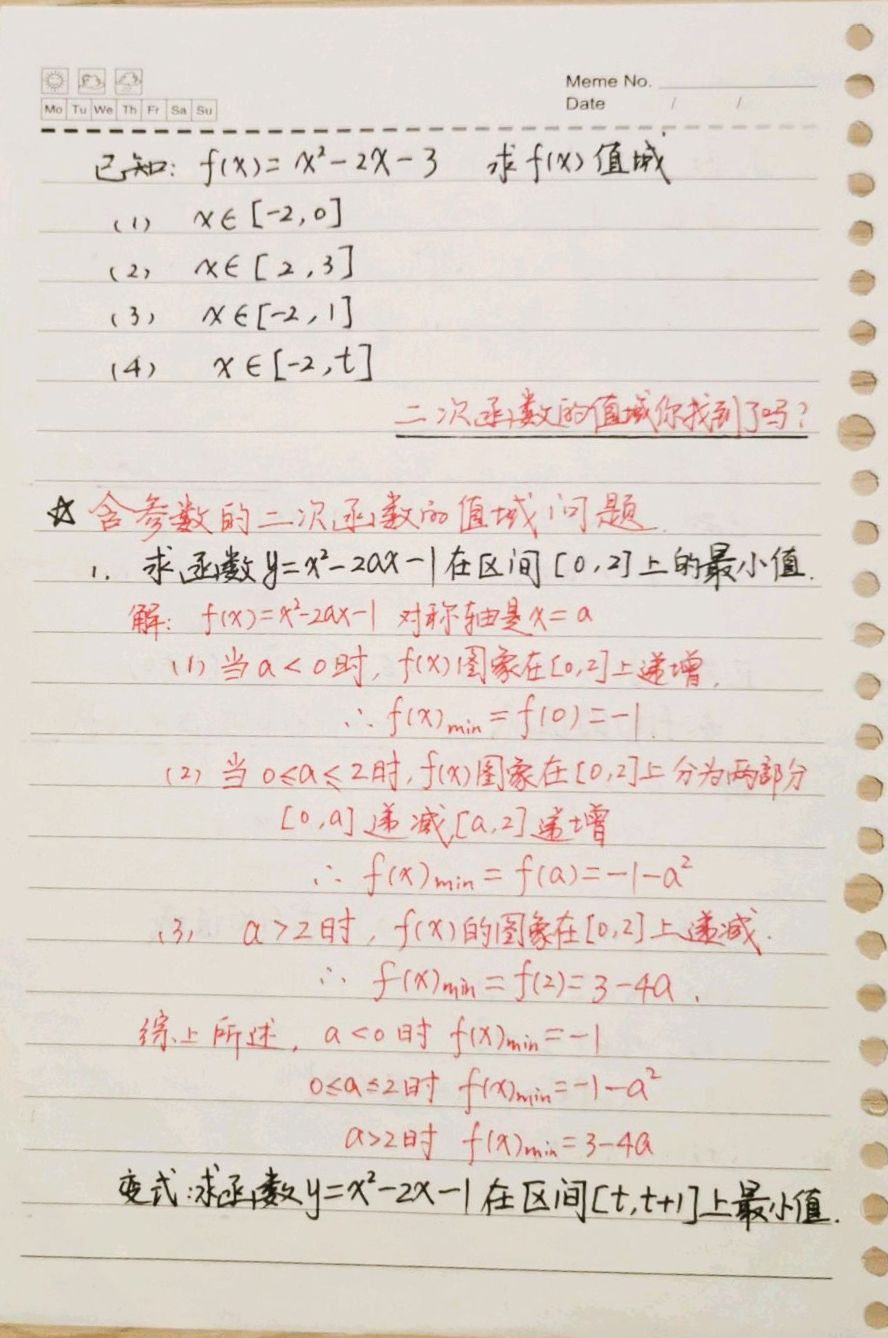 Meme No.
Mo Tu We Th Fr Sa Su
Date / /
已知: f(x)=x²-2x-3 求f(x)值域
(1) x∈[-2,0]
(2) x∈[2,3]
(3) x∈[-2,1]
(4) x∈[-2,t]
二次函数的值域你找到了吗?
☆含参数的二次函数的值域问题
1. 求函数y=x²-2ax-1在区间[0,2]上的最小值.
解: f(x)=x²-2ax-1 对称轴是x=a
(1)当a<0时, f(x)图象在[0,2]上递增.
∴f(x)min=f(0)=-1
(2)当0≤a≤2时,f(x)图象在[0,2]上分为两部分
[0,a]递减,[a,2]递增
∴f(x)min=f(a)=-1-a²
(3) a>2时, f(x)的图象在[0,2]上递减.
∴f(x)min=f(2)=3-4a.
综上所述, a<0时 f(x)min=-1
0≤a≤2时 f(x)min=-1-a²
a>2时 f(x)min=3-4a
变式:求函数y=x²-2x-1在区间[t,t+1]上最小值.